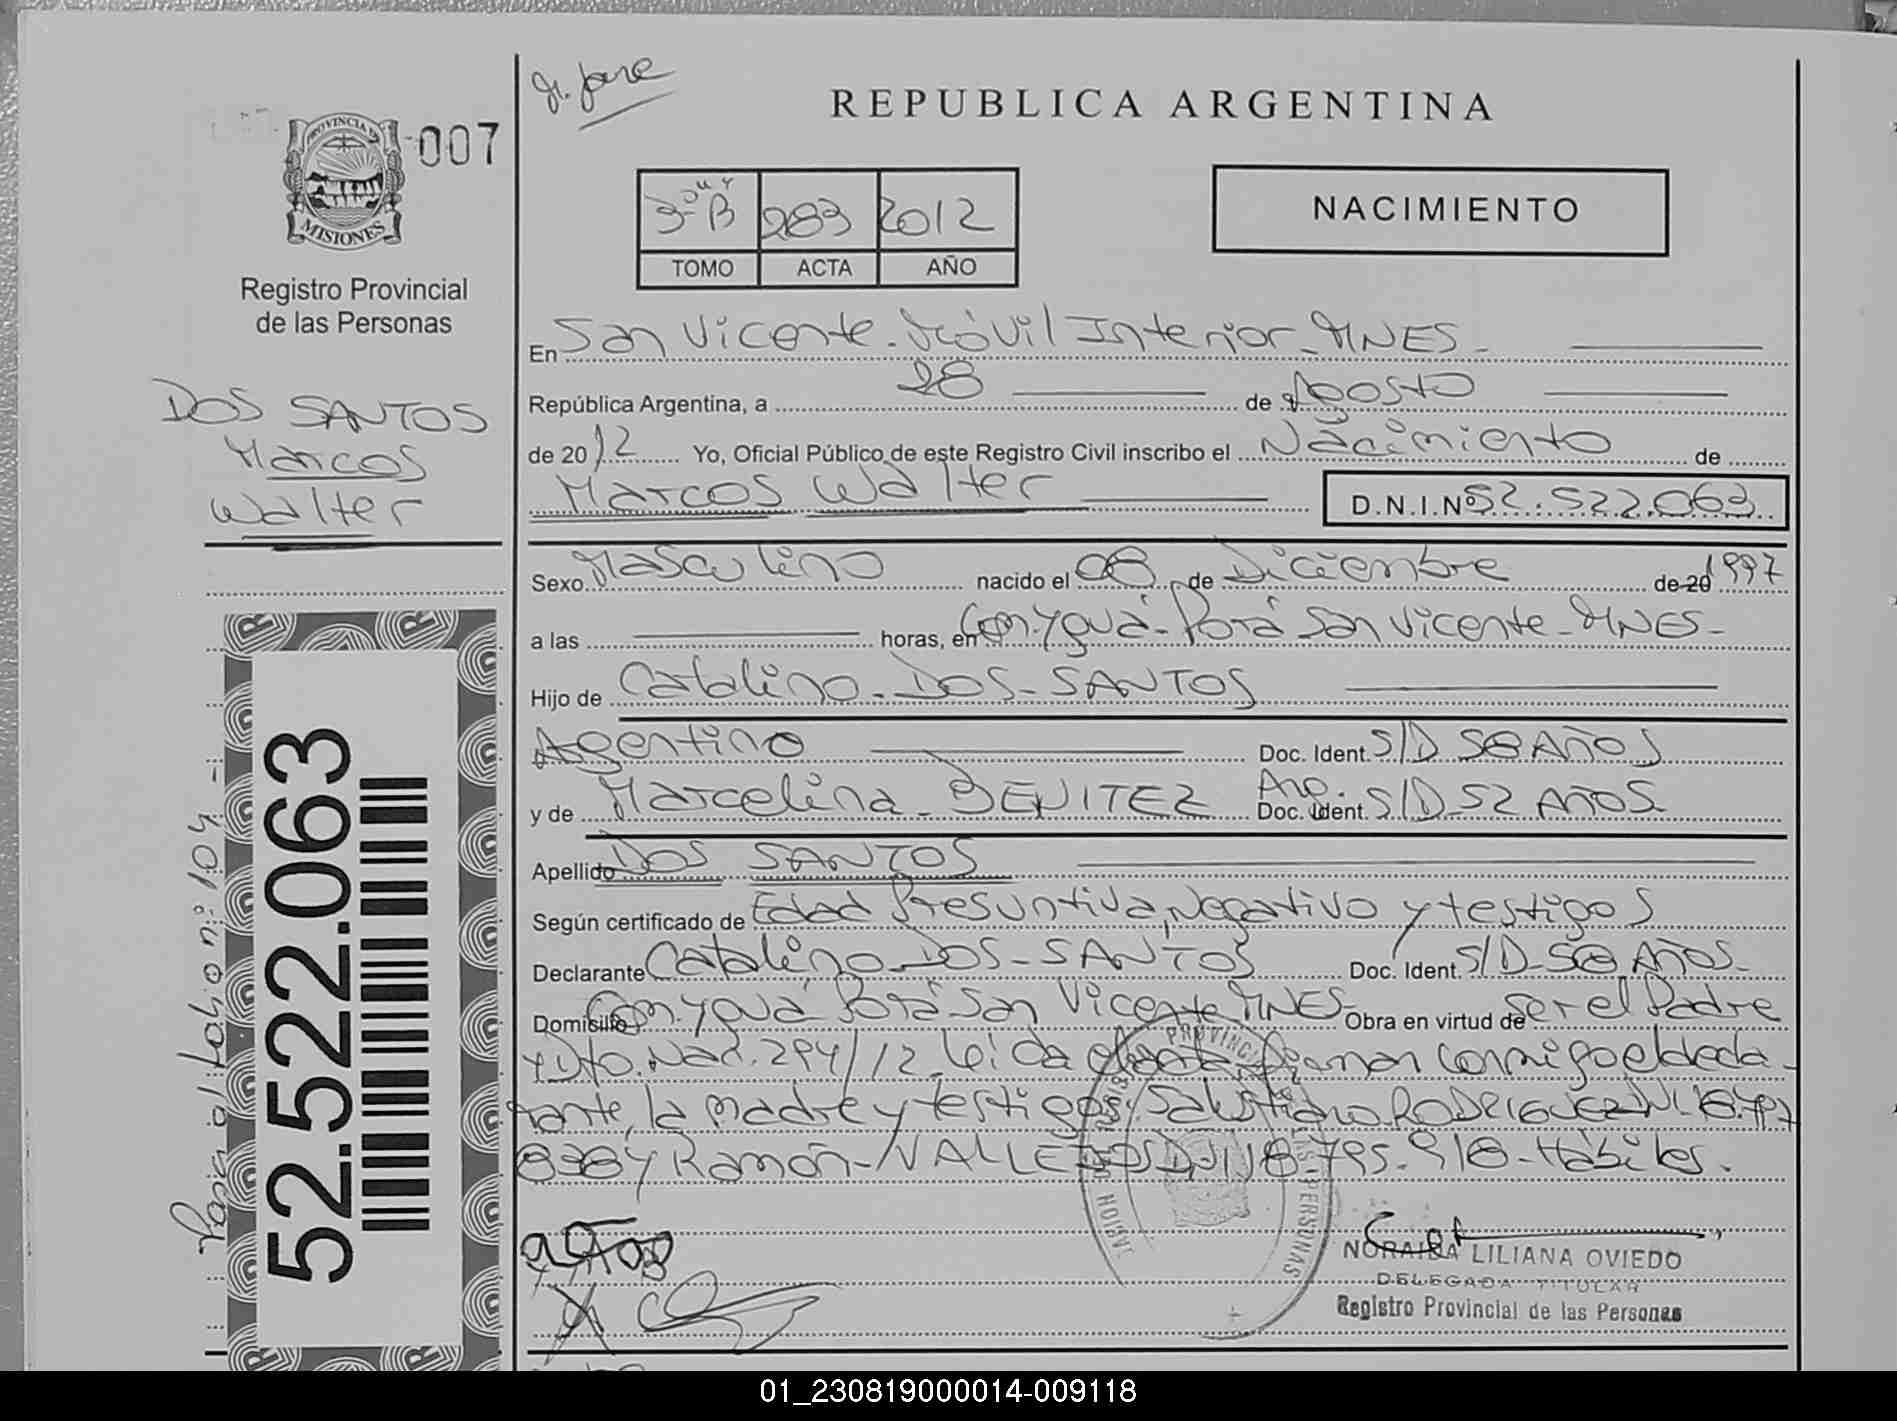 REPUBLICA ARGENTINA
PROVINCIA DE
MISIONES
007
Registro Provincial
de las Personas
3º "B" 283 2012
TOMO ACTA AÑO
NACIMIENTO
DOS SANTOS
Marcos
Walter
En San Vicente - Móvil Interior - MNES -
República Argentina, a 28 de Agosto
de 2012 Yo, Oficial Público de este Registro Civil inscribo el Nacimiento de
Marcos Walter D.N.I.Nº 52.522.063
Sexo Masculino nacido el 08 de Diciembre de 20 1997
a las horas, en Con. Yguá - Porá San Vicente - MNES -
Hijo de Catalino - DOS - SANTOS
Argentino Doc. Ident. S/D 58 AÑOS
y de Marcelina - BENITEZ Arg. Doc. Ident. S/D 52 AÑOS.
Apellido DOS SANTOS
Según certificado de Edad Presuntiva, Negativo y testigos
Declarante Catalino - DOS - SANTOS Doc. Ident. S/D - 58 AÑOS -
Domicilio Con. Yguá Porá San Vicente MNES - Obra en virtud de Ser el Padre
y Dto. Nac. 294/12. Leída el acta, firman conmigo el decla-
rante, la madre y testigos: Salustiano RODRIGUEZ
838 y Ramón - VALLEJOS DNI 18.795.918 - Hábiles.
NORAIDA LILIANA OVIEDO
DELEGADA TITULAR
Registro Provincial de las Personas
52.522.063
Pasa al folio nº: 104 -
01_230819000014-009118